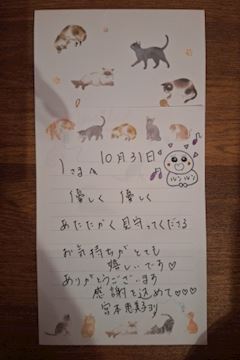 10月31日
1さまへ
ルンルン
優しく 優しく
あたたかく見守ってくださる
お気持ちがとても
嬉しいです♡
ありがとうございます
感謝を込めて♡♡♡
宮本恵美子より